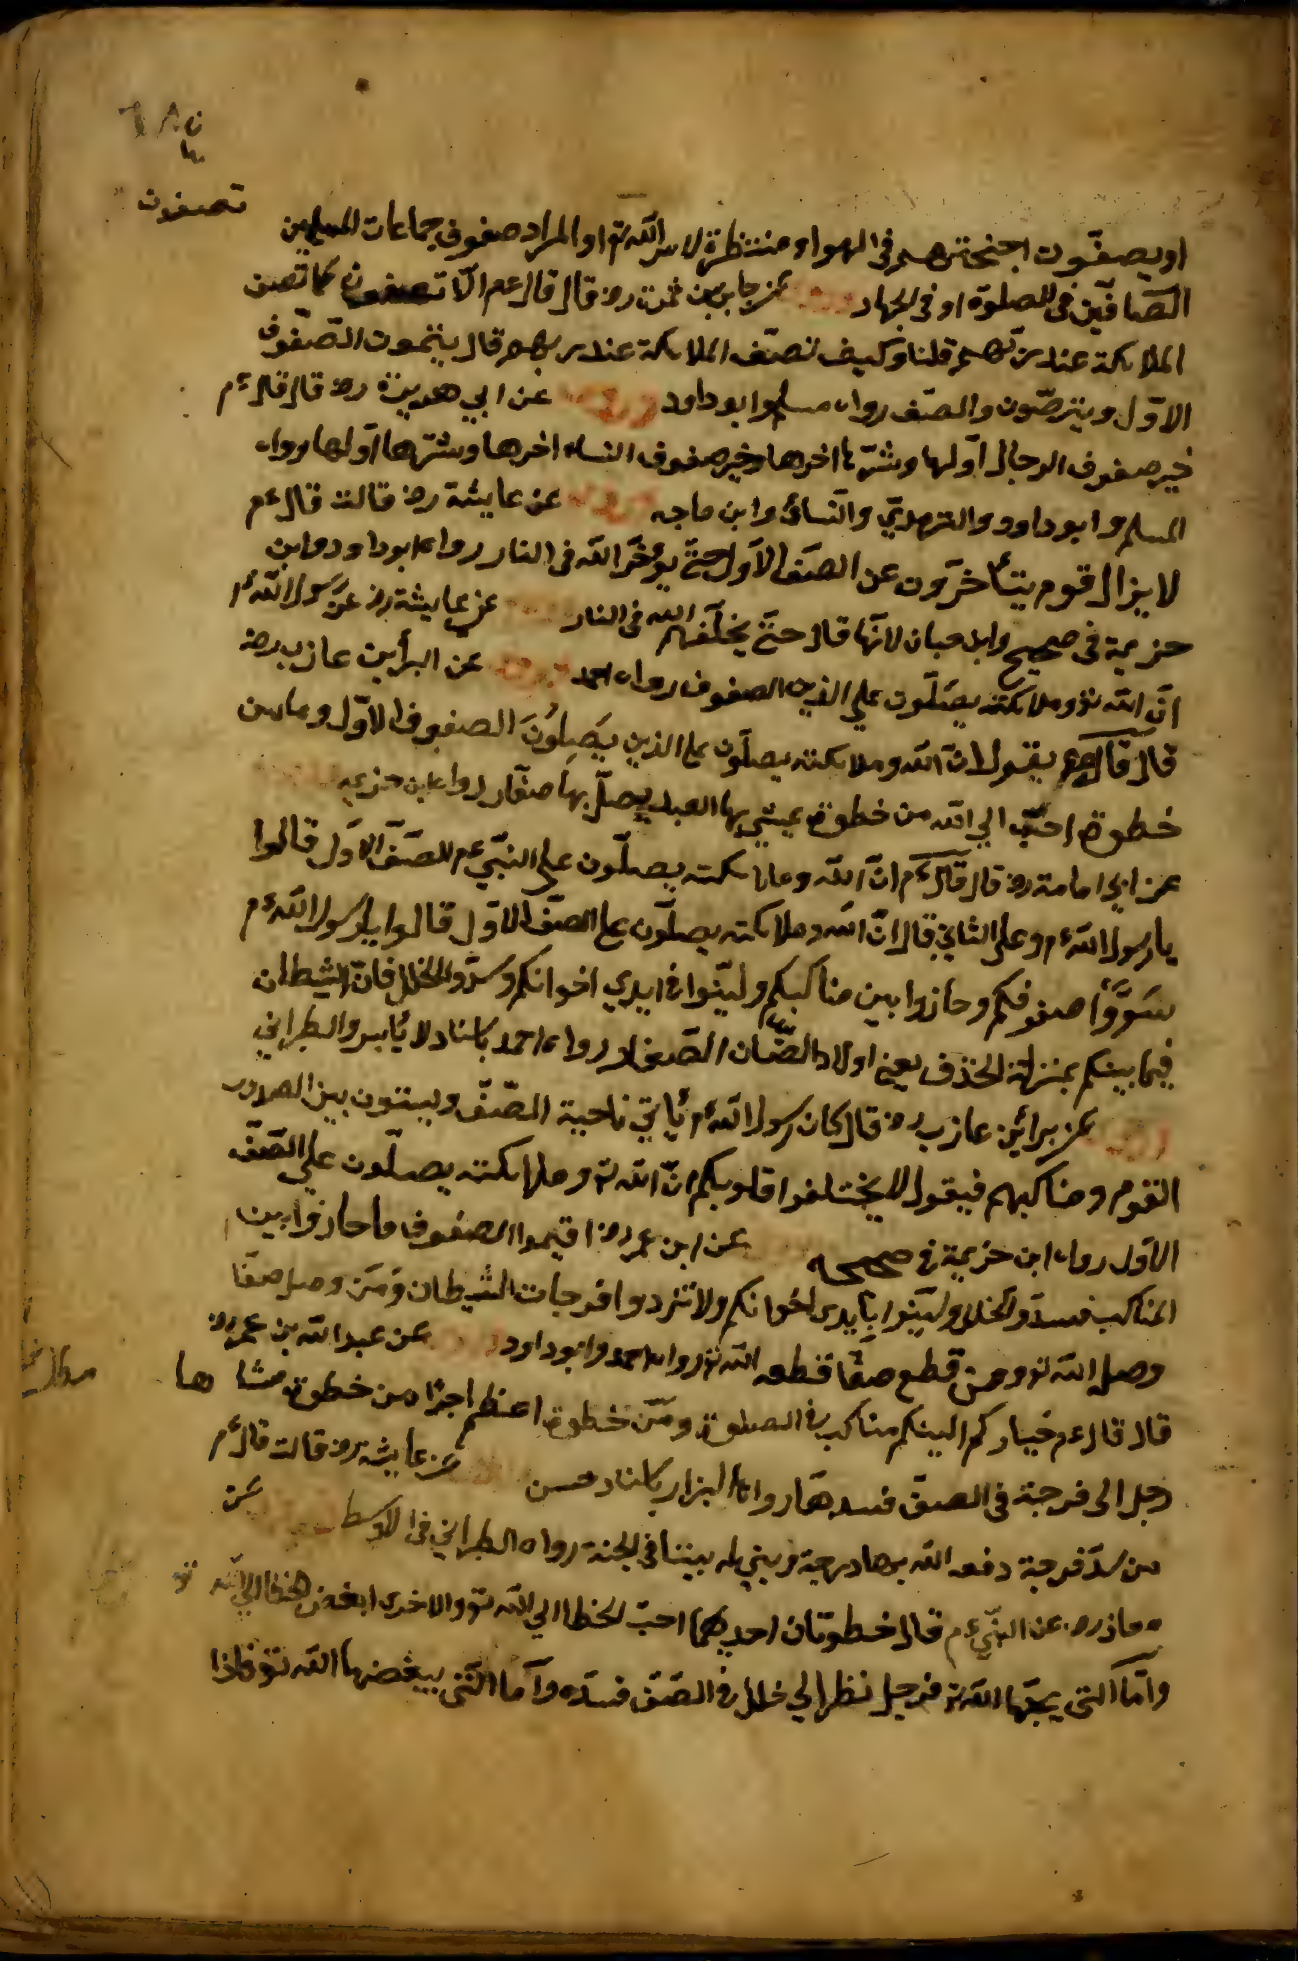 تصفون
او يصفّون اجنحتهم في الهواء منتظرة لامر الله تع او المراد صفوف جماعات المسلمين
الصّافّين في الصلوة او في الجهاد عن جابر بن سمرة رض قال قال عم الّا تصفون كما تصف
الملائكة عند ربّهم قلنا وكيف تصف الملائكة عند ربهم قال يتمّون الصّفوف
الاوّل ويترصّون والصّف رواه مسلم وابو داود عن ابي هريرة رض قال قال ءم
خير صفوف الرجال اوّلها وشرّها اخرها وخير صفوف النساء اخرها وشرّها اوّلها رواه
المسلم وابو داود والترمذيّ والنّسائ وابن ماجه عن عايشة رض قالت قال ءم
لا يزال قوم يتأخّرون عن الصّف الاوّل حتّى يؤخّر الله في النار رواه ابو داود وابن
حزيمة في صحيح وابن حبان لانّها قال حتّى يخلّفهم الله في النار عن عايشة رض عن رسول الله ءم
انّ الله تع وملائكته يصلّون على الذين الصفوف رواه احمد عن البرأ بن عازب رض
قال قال عم يقول انّ الله وملائكته يصلّون على الذين يَصِلُونَ الصفوف الاوّل وما من
خطوة احبّ الى الله من خطوة يمشي بها العبد يصلّ بها صفّا رواه ابن حزيمه
عن ابي امامة رض قال قال ءم انّ الله وملائكته يصلّون على النبّي عم للصّف الاوّل قالوا
يا رسول الله ءم وعلى الثاني قال انّ الله وملائكته يصلّون على الصّف الاوّل قالوا يا رسول الله ءم
سَوّوا صفوفكم وحازوا بين مناكبكم وليّنوا في ايدي اخوانكم وسدّوا الخلل فانّ الشيطان
فيما بينكم بمنزلة الخذف يعني اولاد الضّأن الصّغار رواه احمد باسناد لا بأس والطبراني
عن برائ بن عازب رض قال كان رسول الله ءم يأتي ناحية الصّفّ ويستون بين الصدور
القوم ومناكبهم فيقول لا يختلفوا قلوبكم انّ الله تع وملائكته يصلّون على الصّفّ
الاوّل رواه ابن حزيمة في صحيحه عن ابن عمر رض اقيموا الصفوف وحازوا بين
المناكب فسدّوا الخلل وليّنوا بأيدى اخوانكم ولا تذروا فرجات الشيطان ومن وصل صفّا
وصله الله تع ومن قطع صفّا قطعه الله تع رواه احمد وابو داود عن عبد الله بن عمر رض
قال قال عم خياركم الينكم مناكب في الصلوة ومن خطوة اعظم اجرًا من خطوة مشاها
رجل الى فرجة في الصفّ فسدها رواه البزار باسناد حسن عن عايشه رض قالت قال ءم
من سدّ فرجة دفعه الله بها درجة وبني له بيتا في الجنة رواه الطبراني في الاوسط عن
معاذ رض عن النبّي ءم قال خطوتان احديهما احبّ الخطا الى الله تع والاخرى ابغض الخطا الى الله تع
وامّا التى يحبّها الله تع فرجل نظر الى خلل في الصّفّ فسدّه وامّا التّى يبغضها الله تع فاذا